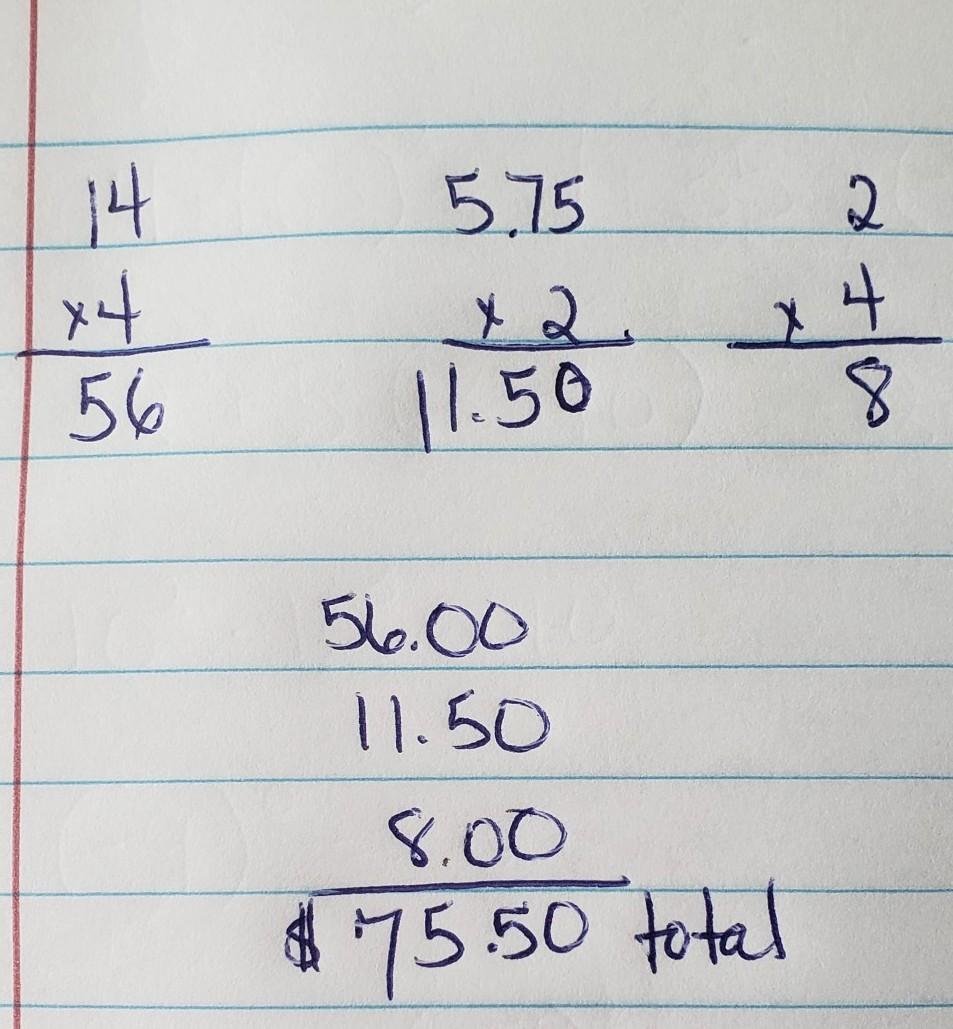 14 5.75 2
x4 x 2 x 4
56 11.50 8
56.00
11.50
8.00
$75.50 total